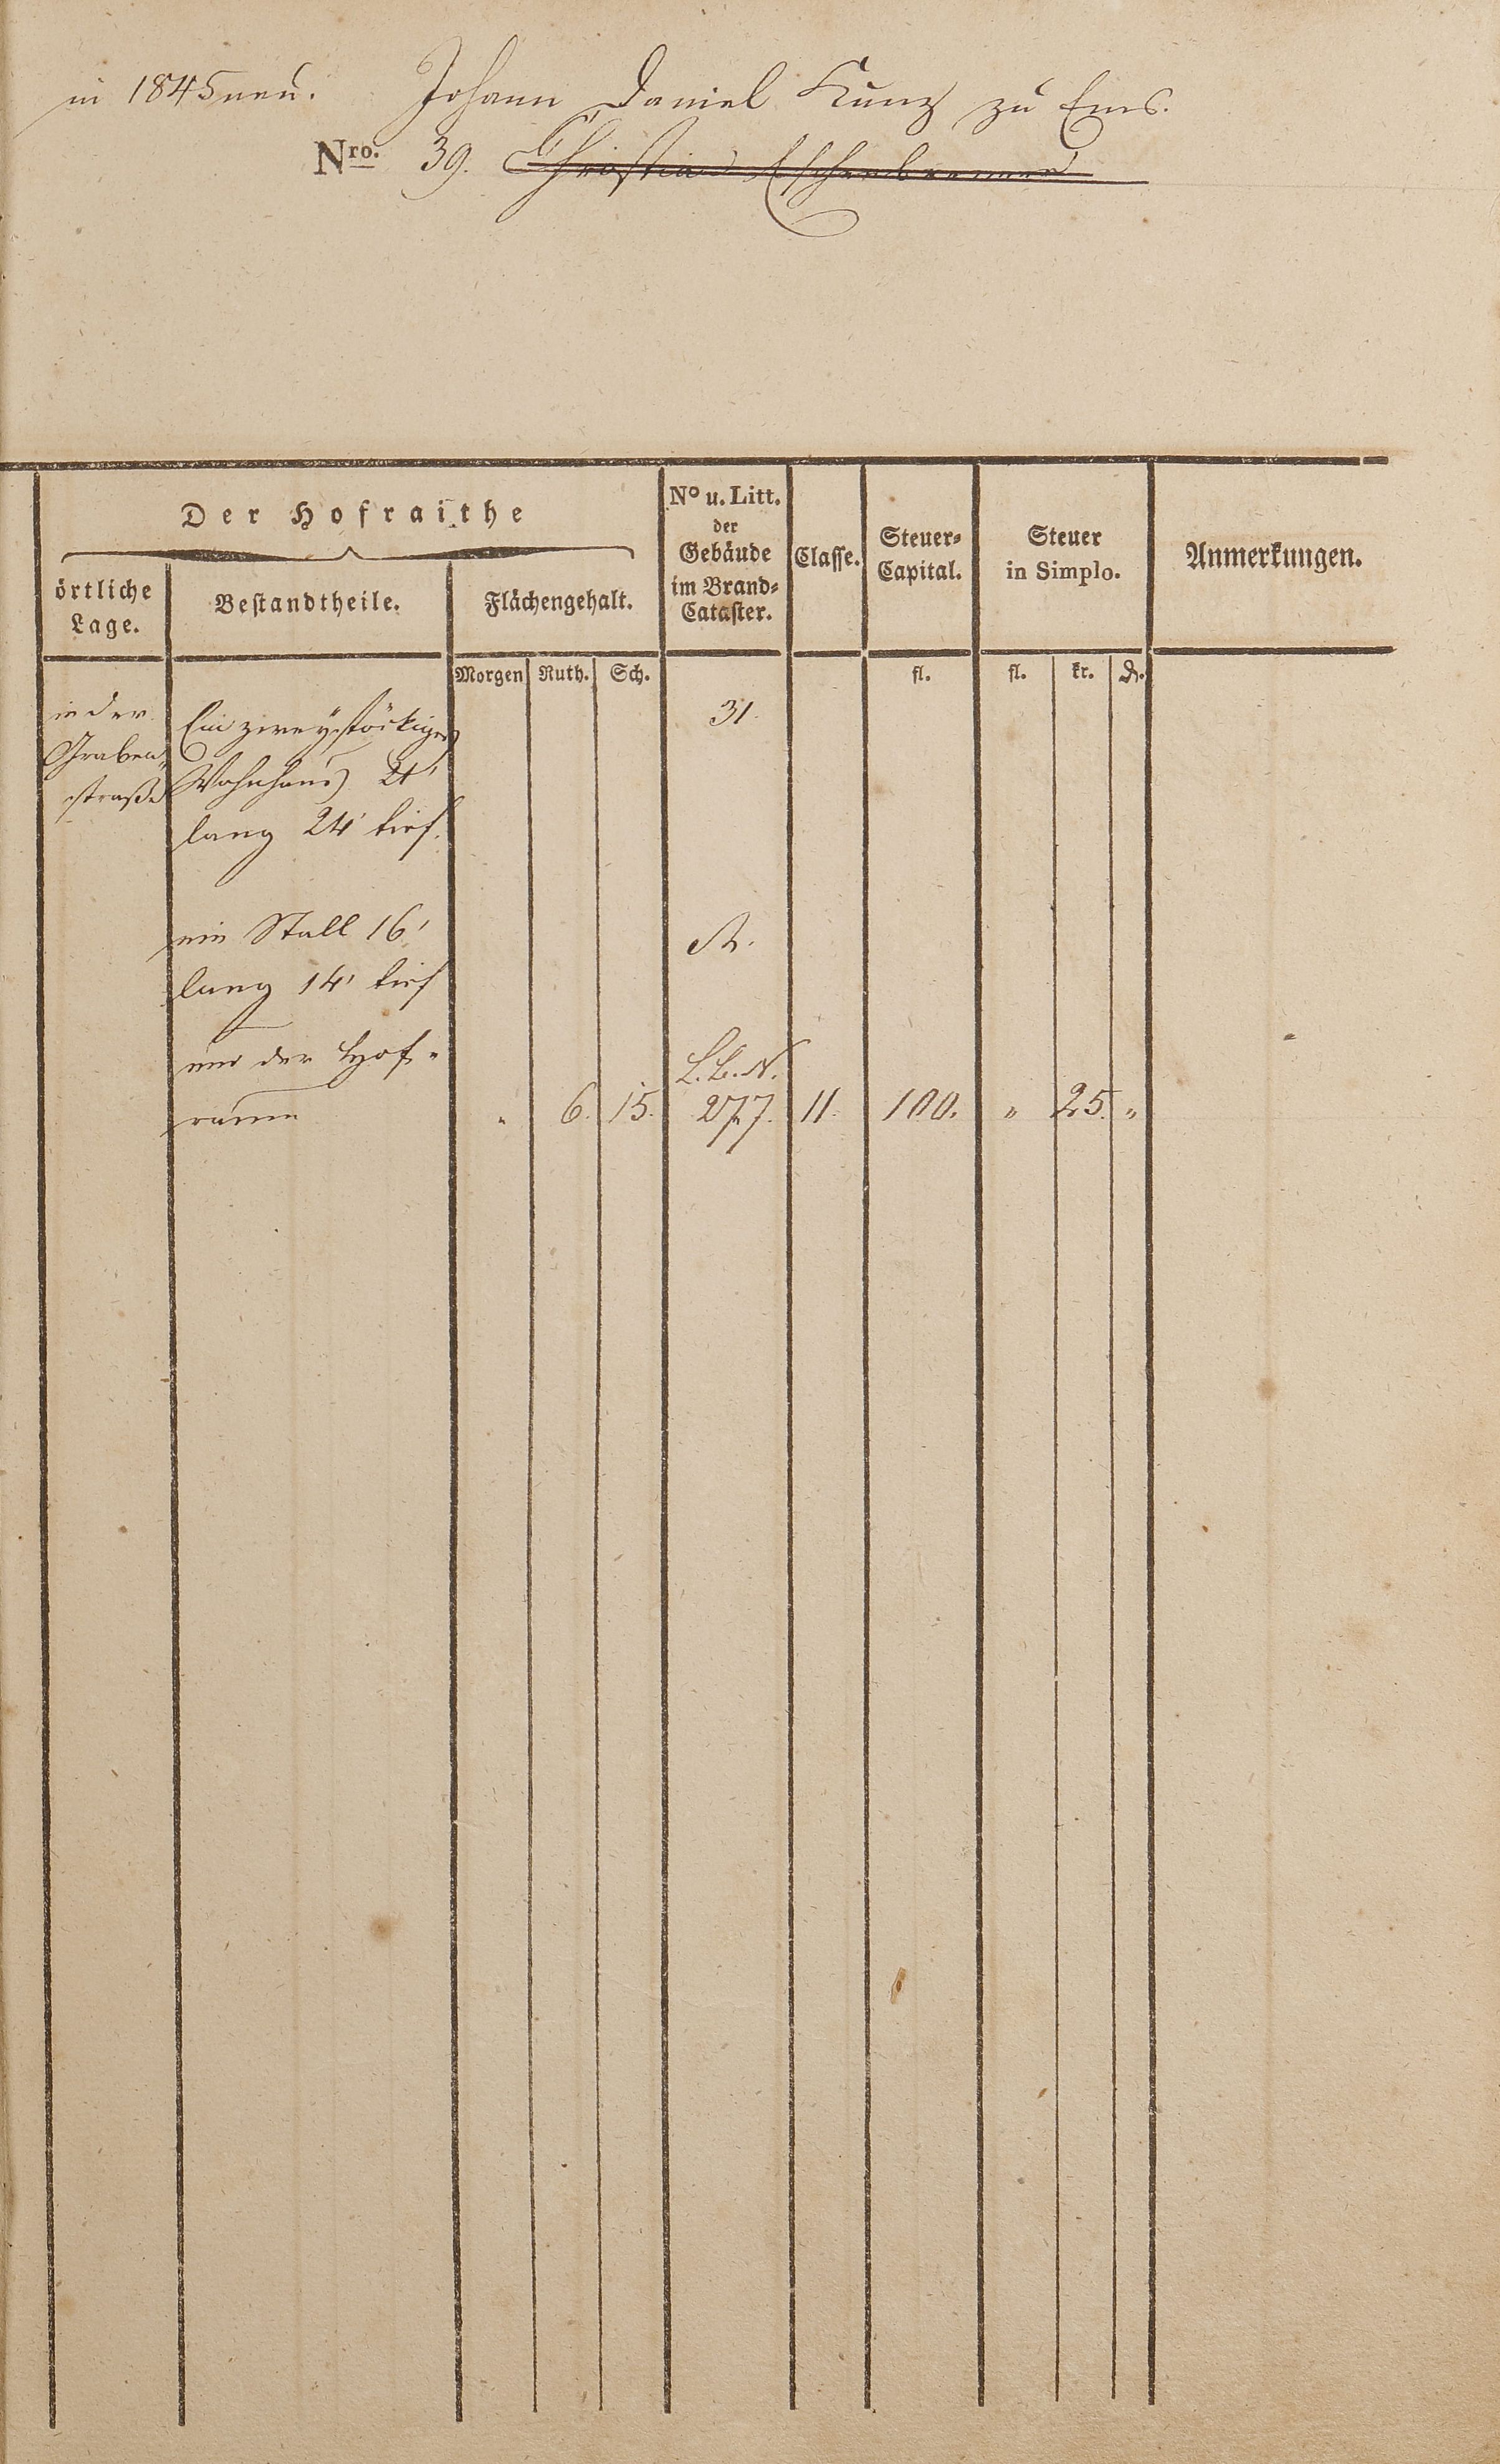 in 1845 neu. Johann Daniel Kunz zu Ems.
Nro. 39. Christian Eschenbrenner
Der Hofraithe
örtliche
Lage.
Bestandtheile.
Flächengehalt.
No u. Litt.
der
Gebäude
im Brand-
Cataster.
Classe.
Steuer-
Capital.
Steuer
in Simplo.
Anmerkungen.
Morgen Ruth. Sch. fl. fl. kr. d.
in der
Graben-
straße
Ein zweystöckiges 31.
Wohnhaus 21'
lang 24' tief.
ein Stall 16' A.
lang 14' tief
und der Hof-
L.B.N.
raum " 6. 15. 277. 11. 100. " 25. "